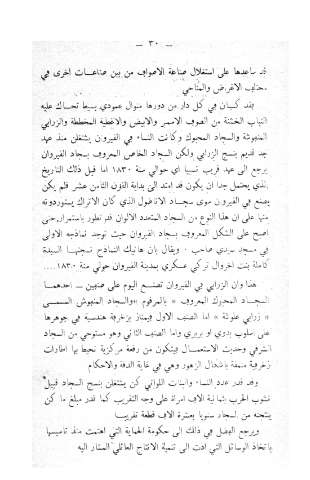 — ٣٠ —
قد ساعدها على استغلال صناعة الاصواف من بين صناعات اخرى في
مختلف الاغراض والمناحي
فقد كـان في كل دار من دورها منوال عمودي بسيط تحاك عليه
الثياب الخشنة من الصوف الاسمر والابيض والاغطية المخططة والزرابي
المنقوشة والسجاد المحبوك وكانت النساء في القيروان يشتغلن منذ عهد
جد قديم بنسج الزرابي ولكن السجاد الخاص المعروف بسجاد القيروان
يرجع الى عهد قريب نسبيا اي حوالي سنة ١٨٣٠ اما قبل ذلك التاريخ
الذي يحتمل جدا ان يكون قد امتد الى بداية القرن الثامن عشر فلم يكن
يصنع في القيروان سوى سجـاد الاناضول الذي كان الاتراك يستوردونه
منها على ان هذا النوع من السجاد المتعدد الالوان قد تطور باستمرار حتى
اصبح على الشكل المعروف بسجاد القيروان حيث توجد نماذجه الاولى
في مسجد سيدي صاحب . ويقال بان هاتيك النماذج نسجتها السيدة
كاملة بنت اخروال تركي عسكري بمدينة القيروان حوالي سنة ١٨٣٠ ....
هذا وان الزرابي في القيروان تصنع اليوم على صنفين — احدهمـا
السجـاد المحبوك المعروف « بالمرقوم » والسجاد المنقوش المسمى
« زرابي علوشة » اما الصنف الاول فيمتاز بزخرفة هندسية في جوهرها
على اسلوب بدوي او بربري واما الصنف الثاني وهو مستوحي من السجاد
الشرقي وحديث الاستعمـال فيتكون من رقعة مركزية تحيط بها اطارات
زخرفية منمقة باشكال الزهور وهي في غاية الدقة والاحكام
وقد قدر عدد النساء والبنات اللواتي كن يشتغلن بنسج السجاد قبيل
نشوب الحرب بثمانية الاف امراة على وجه التقريب كما قدر مبلغ ما كن
ينتجنه من السجاد سنويا بعشرة الاف قطعة تقريبا
ويرجع الفضل في ذلك الى حكومة الحماية التي اهتمت منذ تاسيسها
باتخاذ الوسائل التي ادت الى تنمية الانتاج العائلي المشار اليه